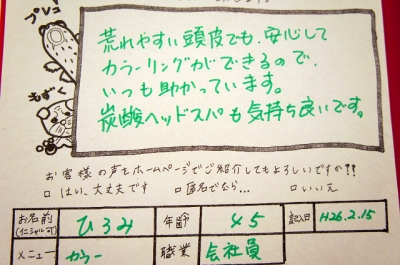 プレコ
もずく
荒れやすい頭皮でも、安心して
カラーリングができるので、
いつも助かっています。
炭酸ヘッドスパも気持ち良いです。
お客様の声をホームページでご紹介してもよろしいですか??
□ はい、大丈夫です □ 匿名でなら… □ いいえ
お名前 (イニシャル可) ひろみ 年齢 45 記入日 H26.2.15
メニュー カラー 職業 会社員